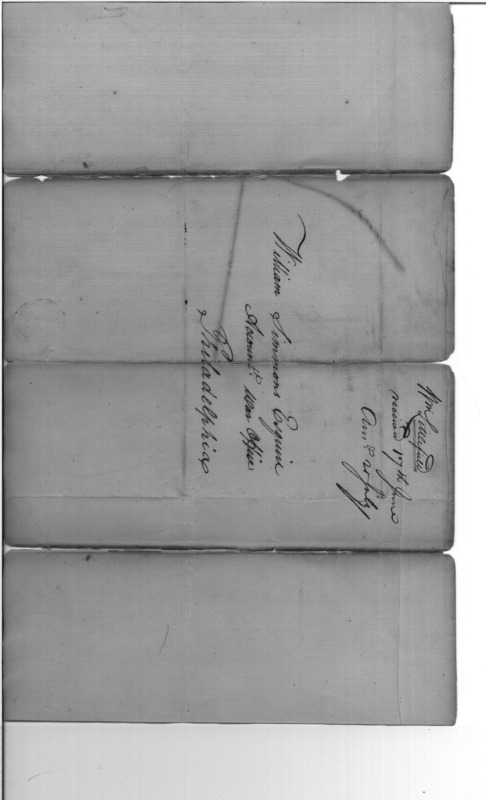 Wm Littlefield
received 17th June
Ansd 20 July
William Simmons Esquire
Accountt War Office
Philadelphia